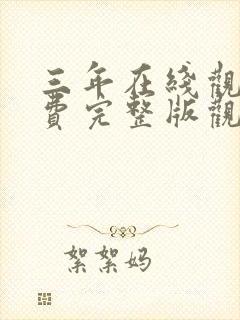 三年在綫觀
費完整版觀
絮絮妈